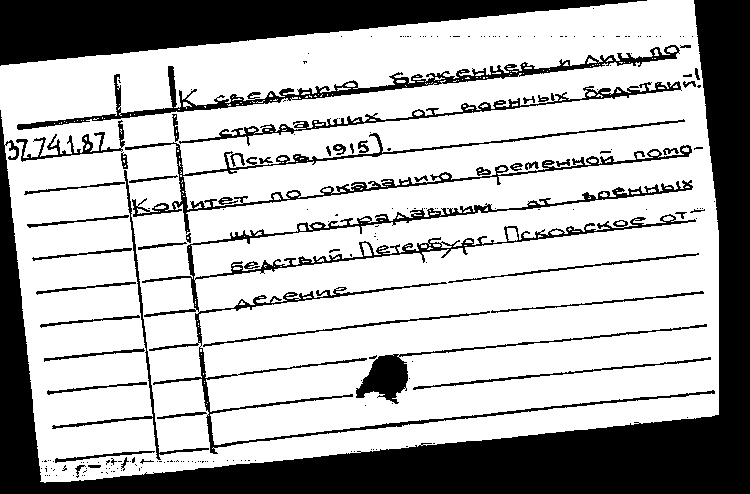 К сведению беженцев и лиц, по-
страдавших от военных бедствий!
37.74.1.87.
[Псков, 1915].
Комитет по оказанию временной помо-
щи пострадавшим от военных
бедствий. Петербург. Псковское от-
деление